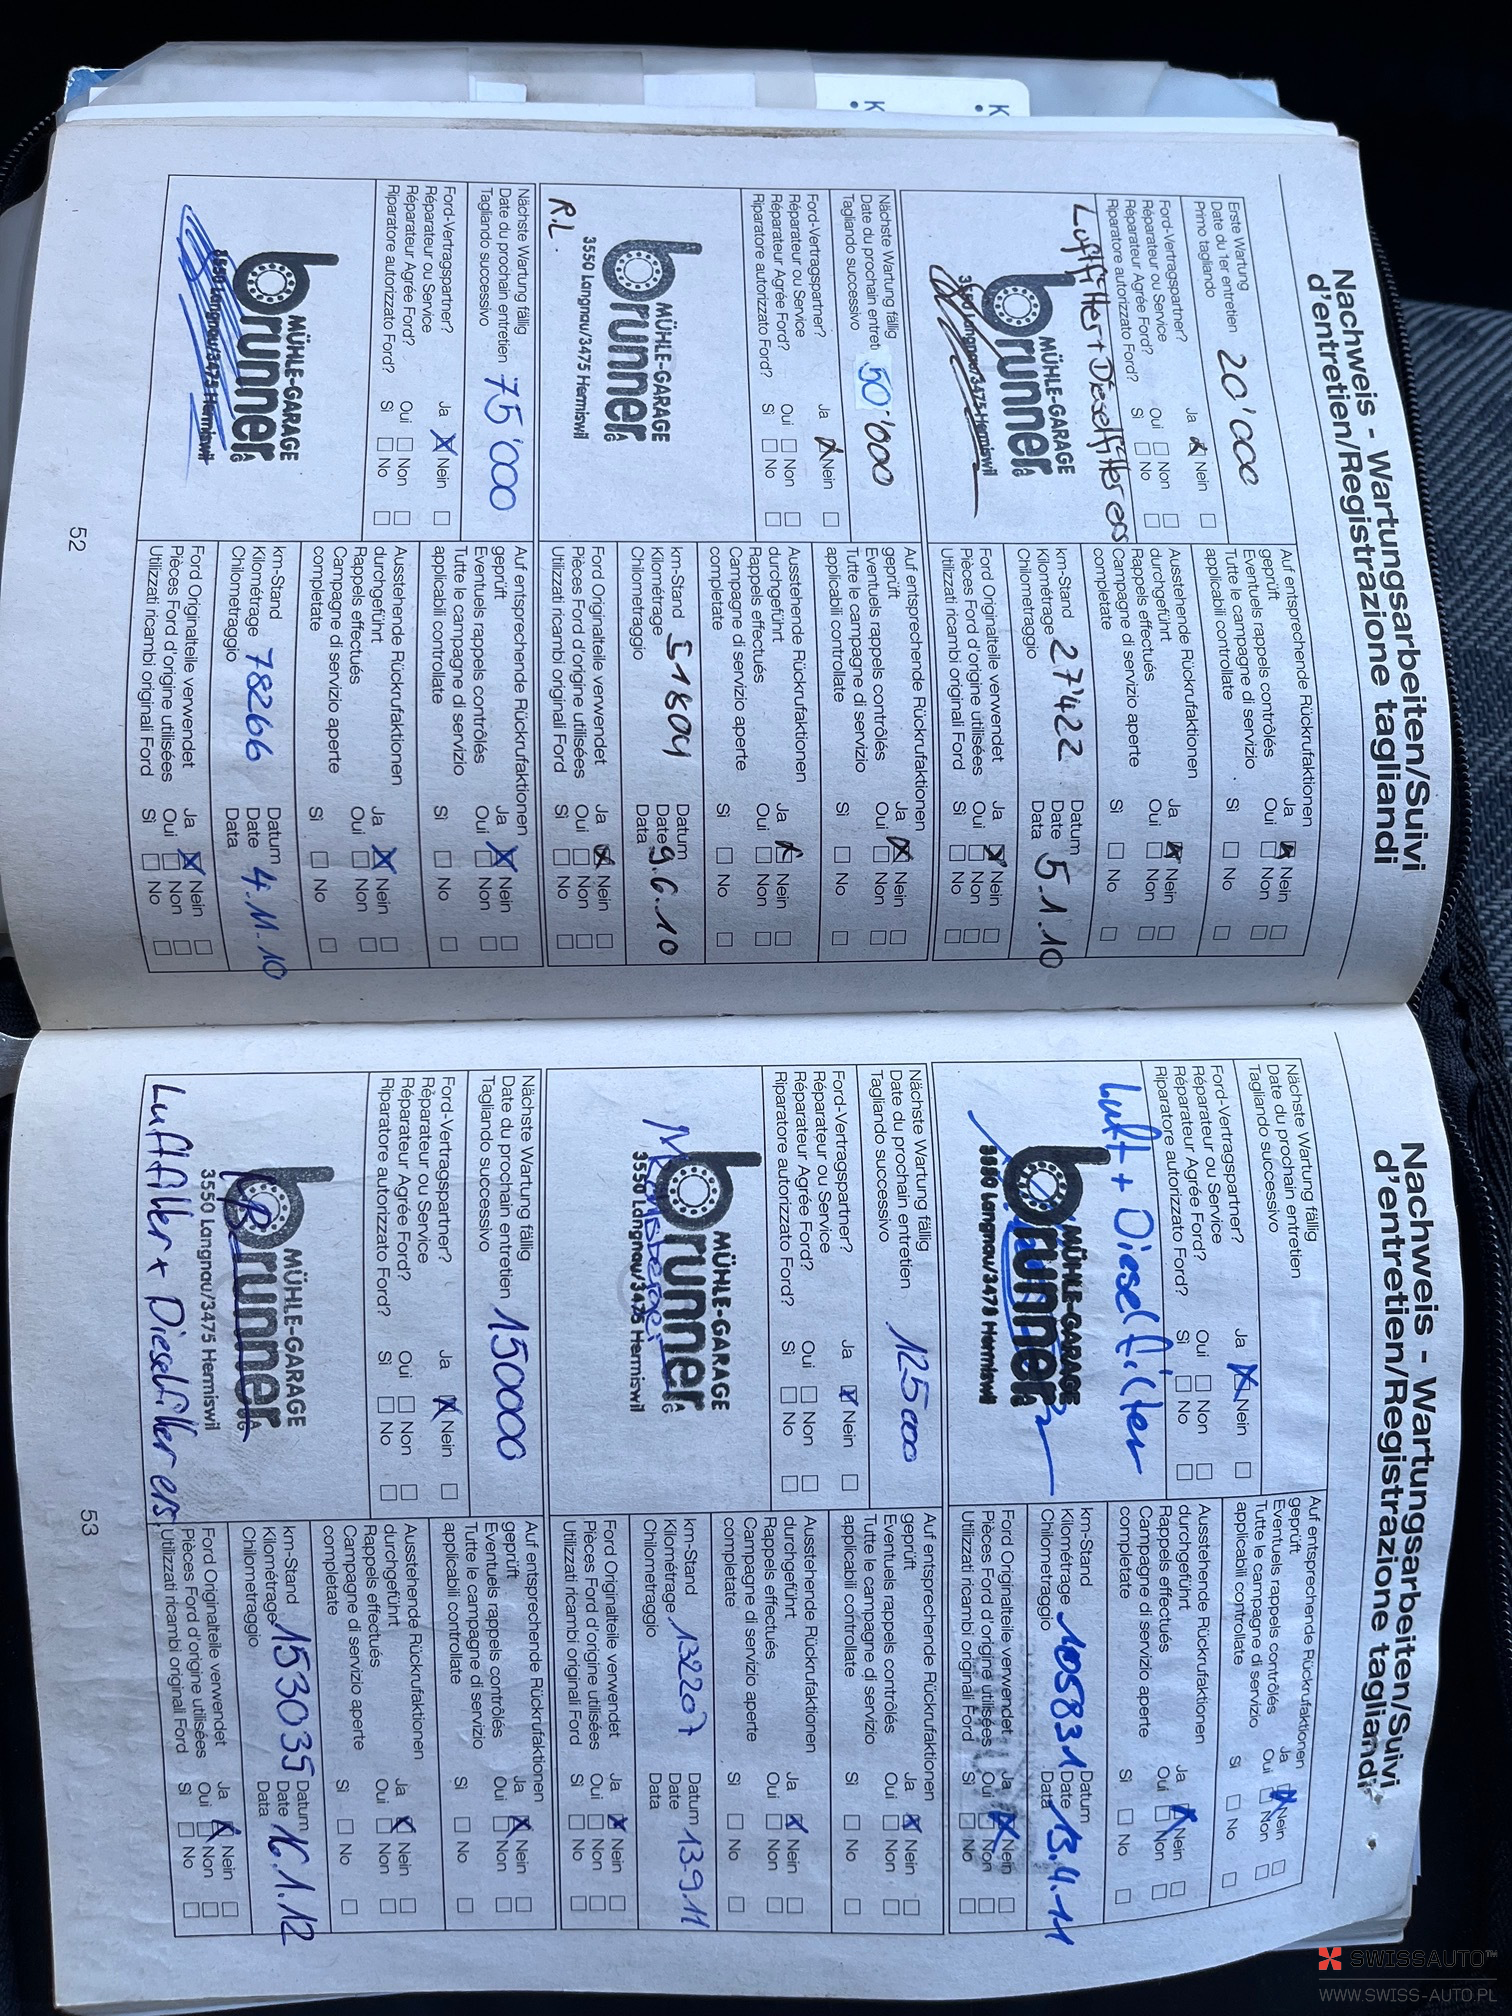 Nachweis - Wartungsarbeiten/Suivi
d'entretien/Registrazione tagliandi
Erste Wartung
Date du 1er entretien 20'000
Primo tagliando
Ford-Vertragspartner? Ja Nein
Réparateur ou Service
Réparateur Agrée Ford? Oui Non
Riparatore autorizzato Ford? Sì No
Luftfilter + Dieselfilter ers
MÜHLE-GARAGE
brunner AG
3550 Langnau/3475 Hermiswil
Auf entsprechende Rückrufaktionen
geprüft Ja Nein
Eventuels rappels contrôlés Oui Non
Tutte le campagne di servizio
applicabili controllate Sì No
Ausstehende Rückrufaktionen
durchgeführt Ja Nein
Rappels effectués Oui Non
Campagne di servizio aperte
completate Sì No
km-Stand Datum
Kilométrage 27'422 Date 5.1.10
Chilometraggio Data
Ford Originalteile verwendet Ja Nein
Pièces Ford d'origine utilisées Oui Non
Utilizzati ricambi originali Ford Sì No
Nächste Wartung fällig
Date du prochain entreti 50'000
Tagliando successivo
Ford-Vertragspartner? Ja Nein
Réparateur ou Service
Réparateur Agrée Ford? Oui Non
Riparatore autorizzato Ford? Sì No
MÜHLE-GARAGE
brunner AG
3550 Langnau/3475 Hermiswil
R.L.
Auf entsprechende Rückrufaktionen
geprüft Ja Nein
Eventuels rappels contrôlés Oui Non
Tutte le campagne di servizio
applicabili controllate Sì No
Ausstehende Rückrufaktionen
durchgeführt Ja Nein
Rappels effectués Oui Non
Campagne di servizio aperte
completate Sì No
km-Stand Datum
Kilométrage 51804 Date 9.6.10
Chilometraggio Data
Ford Originalteile verwendet Ja Nein
Pièces Ford d'origine utilisées Oui Non
Utilizzati ricambi originali Ford Sì No
Nächste Wartung fällig
Date du prochain entretien 75'000
Tagliando successivo
Ford-Vertragspartner? Ja Nein
Réparateur ou Service
Réparateur Agrée Ford? Oui Non
Riparatore autorizzato Ford? Sì No
MÜHLE-GARAGE
brunner AG
3550 Langnau/3475 Hermiswil
Auf entsprechende Rückrufaktionen
geprüft Ja Nein
Eventuels rappels contrôlés Oui Non
Tutte le campagne di servizio
applicabili controllate Sì No
Ausstehende Rückrufaktionen
durchgeführt Ja Nein
Rappels effectués Oui Non
Campagne di servizio aperte
completate Sì No
km-Stand Datum
Kilométrage 78266 Date 4.11.10
Chilometraggio Data
Ford Originalteile verwendet Ja Nein
Pièces Ford d'origine utilisées Oui Non
Utilizzati ricambi originali Ford Sì No
52
Nachweis - Wartungsarbeiten/Suivi
d'entretien/Registrazione tagliandi
Nächste Wartung fällig
Date du prochain entretien
Tagliando successivo
Ford-Vertragspartner? Ja Nein
Réparateur ou Service
Réparateur Agrée Ford? Oui Non
Riparatore autorizzato Ford? Sì No
Luft + Dieselfilter
MÜHLE-GARAGE
brunner
3550 Langnau/3475 Hermiswil
Auf entsprechende Rückrufaktionen
geprüft Ja Nein
Eventuels rappels contrôlés Oui Non
Tutte le campagne di servizio
applicabili controllate Sì No
Ausstehende Rückrufaktionen
durchgeführt Ja Nein
Rappels effectués Oui Non
Campagne di servizio aperte
completate Sì No
km-Stand Datum
Kilométrage 105831 Date 13.4.11
Chilometraggio Data
Ford Originalteile verwendet Ja Nein
Pièces Ford d'origine utilisées Oui Non
Utilizzati ricambi originali Ford Sì No
Nächste Wartung fällig
Date du prochain entretien 125000
Tagliando successivo
Ford-Vertragspartner? Ja Nein
Réparateur ou Service
Réparateur Agrée Ford? Oui Non
Riparatore autorizzato Ford? Sì No
MÜHLE-GARAGE
brunner AG
3550 Langnau/3475 Hermiswil
Auf entsprechende Rückrufaktionen
geprüft Ja Nein
Eventuels rappels contrôlés Oui Non
Tutte le campagne di servizio
applicabili controllate Sì No
Ausstehende Rückrufaktionen
durchgeführt Ja Nein
Rappels effectués Oui Non
Campagne di servizio aperte
completate Sì No
km-Stand Datum
Kilométrage 132207 Date 13.9.11
Chilometraggio Data
Ford Originalteile verwendet Ja Nein
Pièces Ford d'origine utilisées Oui Non
Utilizzati ricambi originali Ford Sì No
Nächste Wartung fällig
Date du prochain entretien 150000
Tagliando successivo
Ford-Vertragspartner? Ja Nein
Réparateur ou Service
Réparateur Agrée Ford? Oui Non
Riparatore autorizzato Ford? Sì No
MÜHLE-GARAGE
brunner AG
3550 Langnau/3475 Hermiswil
Luftfilter + Dieselfilter ers.
Auf entsprechende Rückrufaktionen
geprüft Ja Nein
Eventuels rappels contrôlés Oui Non
Tutte le campagne di servizio
applicabili controllate Sì No
Ausstehende Rückrufaktionen
durchgeführt Ja Nein
Rappels effectués Oui Non
Campagne di servizio aperte
completate Sì No
km-Stand Datum
Kilométrage 153035 Date 16.1.12
Chilometraggio Data
Ford Originalteile verwendet Ja Nein
Pièces Ford d'origine utilisées Oui Non
Utilizzati ricambi originali Ford Sì No
53
SWISSAUTO™
WWW.SWISS-AUTO.PL